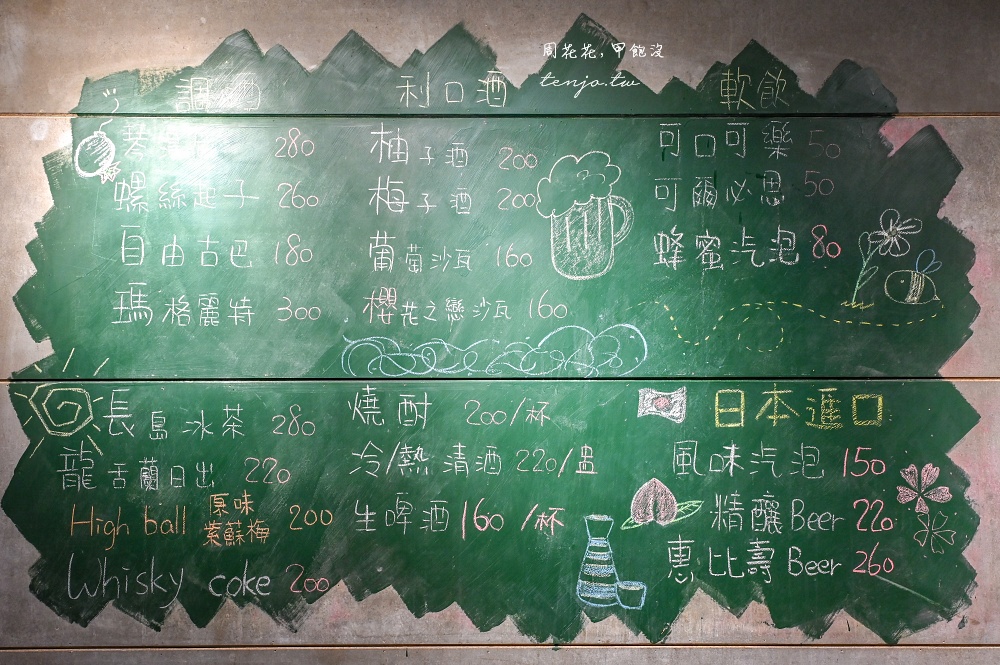 周花花，甲飽沒
tenjo.tw
調酒
280
螺絲起子 260
自由古巴 180
瑪格麗特 300
長島冰茶 280
龍舌蘭日出 220
High ball 原味 紫蘇梅 200
Whisky coke 200
利口酒
柚子酒 200
梅子酒 200
葡萄沙瓦 160
櫻花之戀沙瓦 160
燒酎 200/杯
冷/熱清酒 220/盅
生啤酒 160/杯
軟飲
可口可樂 50
可爾必思 50
蜂蜜汽泡 80
日本進口
風味汽泡 150
精釀Beer 220
惠比壽Beer 260